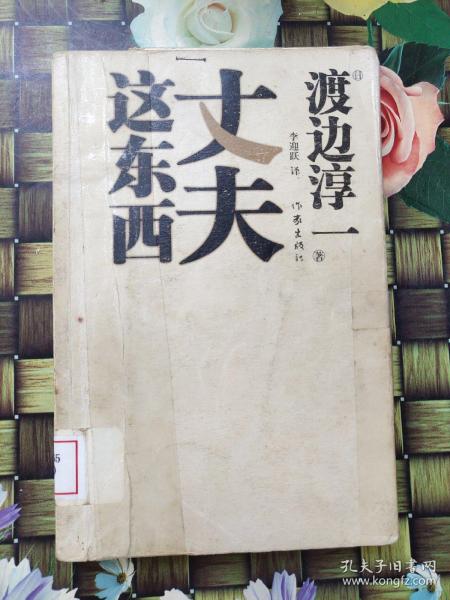 [日]
渡边淳一
著
李迎跃 译
作家出版社
丈夫
这东西
65
孔夫子旧书网
www.kongfz.com